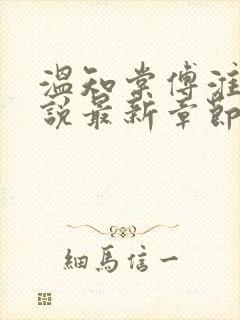 溫知棠傅淮
說最新章節
細馬信一